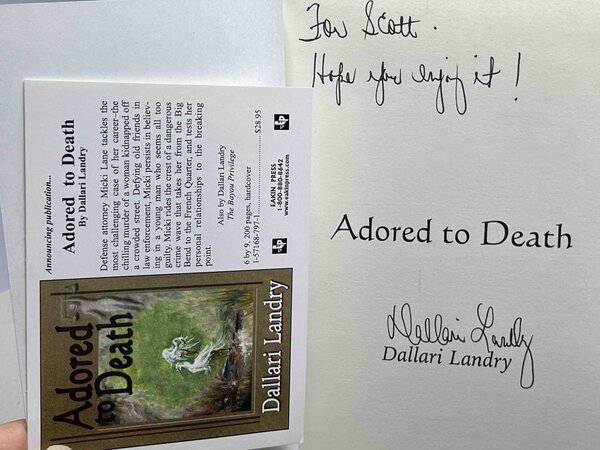 For Scott.
Hope you enjoy it!
Adored to Death
Dallari Landry
Dallari Landry
Announcing publication...
Adored to Death
By Dallari Landry
Defense attorney Micki Lane tackles the
most challenging case of her career–the
chilling murder of a woman kidnapped off
a crowded street. Defying old friends in
law enforcement, Micki persists in believ-
ing in a young man who seems all too
guilty. Micki rides the crest of a dangerous
crime wave that takes her from the Big
Bend to the French Quarter, and tests her
personal relationships to the breaking
point.
Also by Dallari Landry
The Bayou Privilege
6 by 9, 200 pages, hardcover
1-57168-797-1..................$28.95
EAKIN PRESS
1-800-880-8642
www.eakinpress.com
Adored
to Death
Dallari Landry